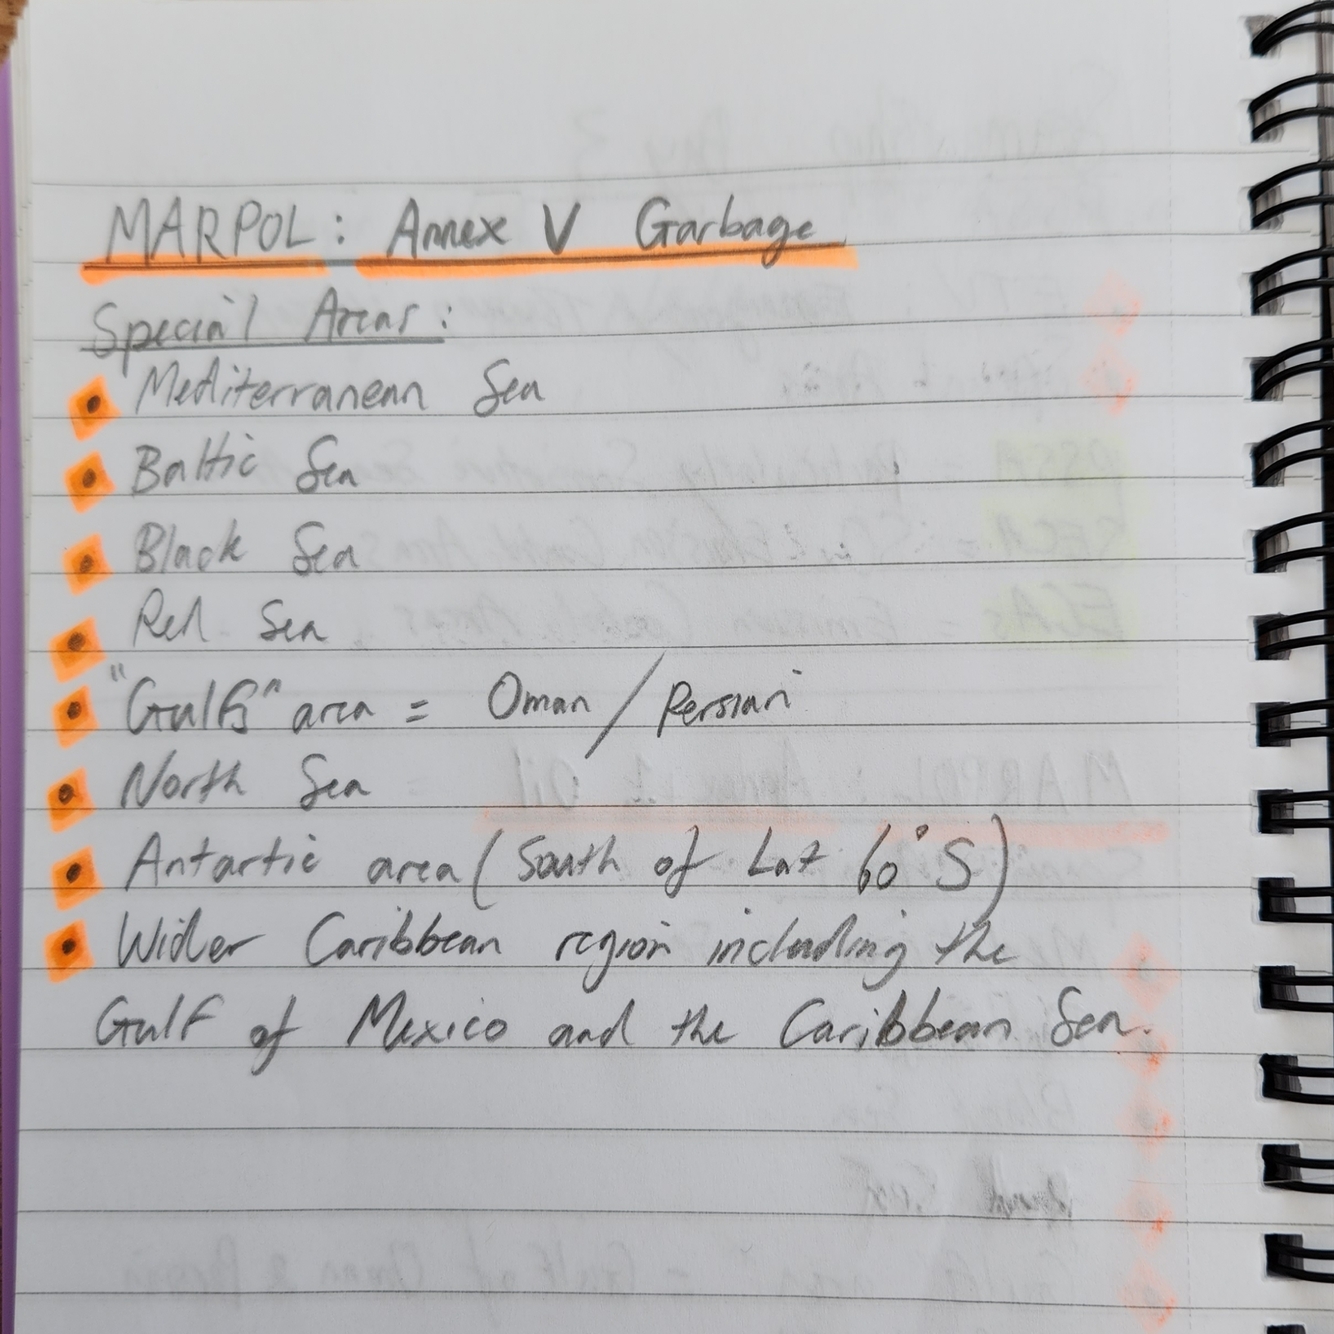 MARPOL: Annex V Garbage
Special Areas:
Mediterranean Sea
Baltic Sea
Black Sea
Red Sea
"Gulfs" area = Oman / Persian
North Sea
Antartic area (South of Lat 60° S)
Wider Caribbean region including the
Gulf of Mexico and the Caribbean Sea.